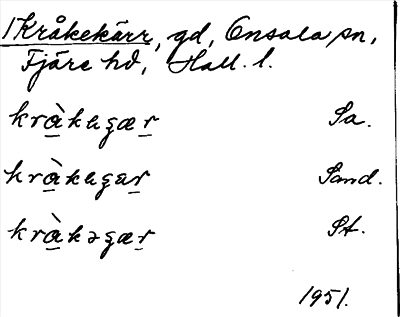 1 Kråkekärr, gd, Onsala sn,
Fjäre hd, Hall. l.
kràkɐʂær Sa.
kràkɐʂær Sand.
kràkəʂær St.
1951.